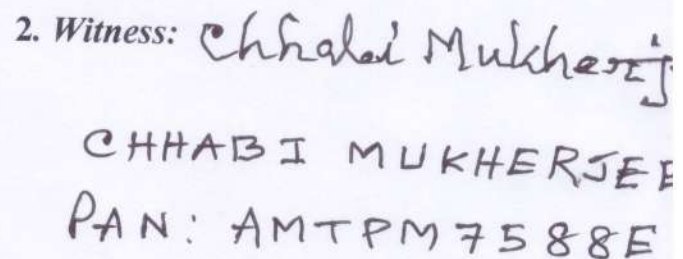 2. Witness: Chhabi Mukherj
CHHABI MUKHERJEE
PAN: AMTPM7588E